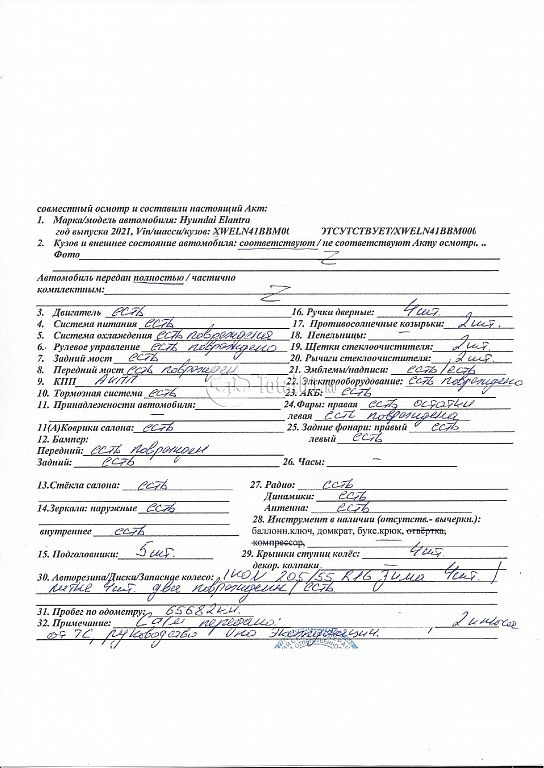 совместный осмотр и составили настоящий Акт:
1. Марка/модель автомобиля: Hyundai Elantra
год выпуска 2021, Vin/шасси/кузов: XWELN41BBM00 ОТСУТСТВУЕТ/XWELN41BBM006
2. Кузов и внешнее состояние автомобиля: соответствуют / не соответствуют Акту осмотра. ..
Фото Z
Автомобиль передан полностью / частично
комплектным: Z
3. Двигатель есть 16. Ручки дверные: 4 шт.
4. Система питания есть 17. Противосолнечные козырьки: 2 шт.
5. Система охлаждения есть повреждения 18. Пепельницы: –
6. Рулевое управление есть повреждено 19. Щетки стеклоочистителя: 2 шт.
7. Задний мост есть 20. Рычаги стеклоочистителя: 2 шт.
8. Передний мост есть поврежден 21. Эмблемы/надписи: есть/есть
9. КПП АКПП 22. Электрооборудование: есть повреждено
10. Тормозная система есть 23. АКБ: есть
11. Принадлежности автомобиля: – 24. Фары: правая есть остатки
левая есть повреждена
11(А)Коврики салона: есть 25. Задние фонари: правый есть
12. Бампер: левый есть
Передний: есть поврежден
Задний: есть 26. Часы: –
13.Стёкла салона: есть 27. Радио: есть
Динамики: есть
14.Зеркала: наружные есть Антенна: есть
28. Инструмент в наличии (отсутств.- вычеркн.):
внутреннее есть баллонн.ключ, домкрат, букс.крюк, отвёртка,
компрессор,
15. Подголовники: 5 шт. 29. Крышки ступиц колёс: 4 шт.
декор. колпаки –
30. Авторезина/Диски/Запасное колесо: IKON 205/55 R16 Зима 4 шт. /
литые 4 шт. два повреждены / есть
31. Пробег по одометру: 65682 км.
32. Примечание: передано: , 2 ключа
от ТС, руководство по эксплуатации.